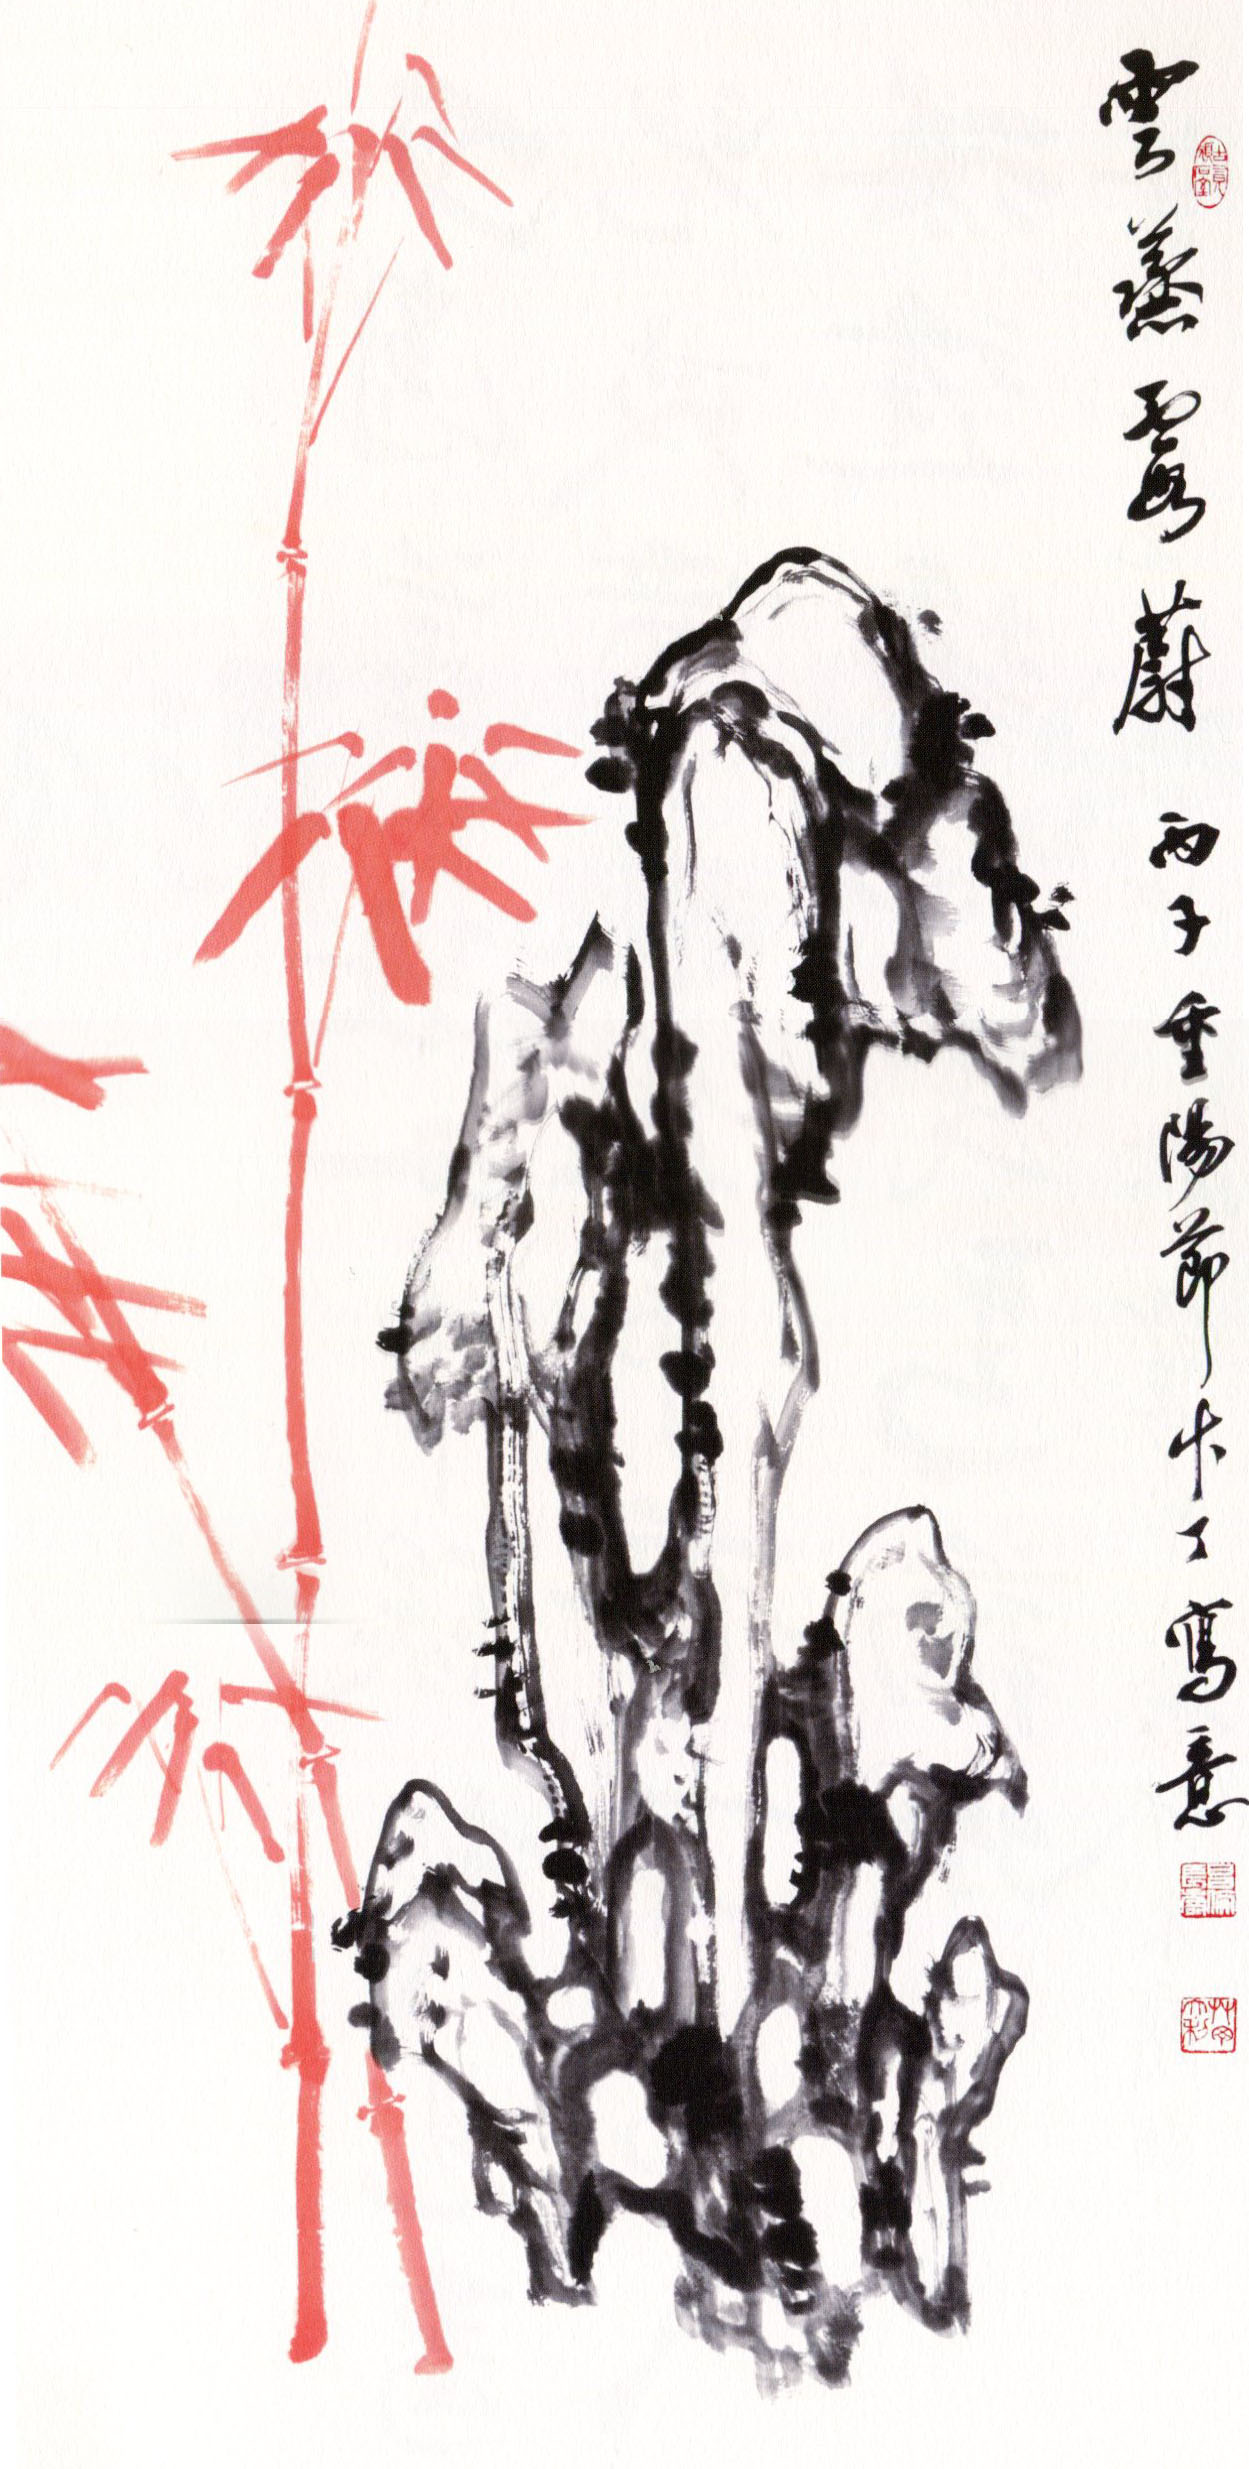 雲蒸霞蔚 丙子重陽節 寫意